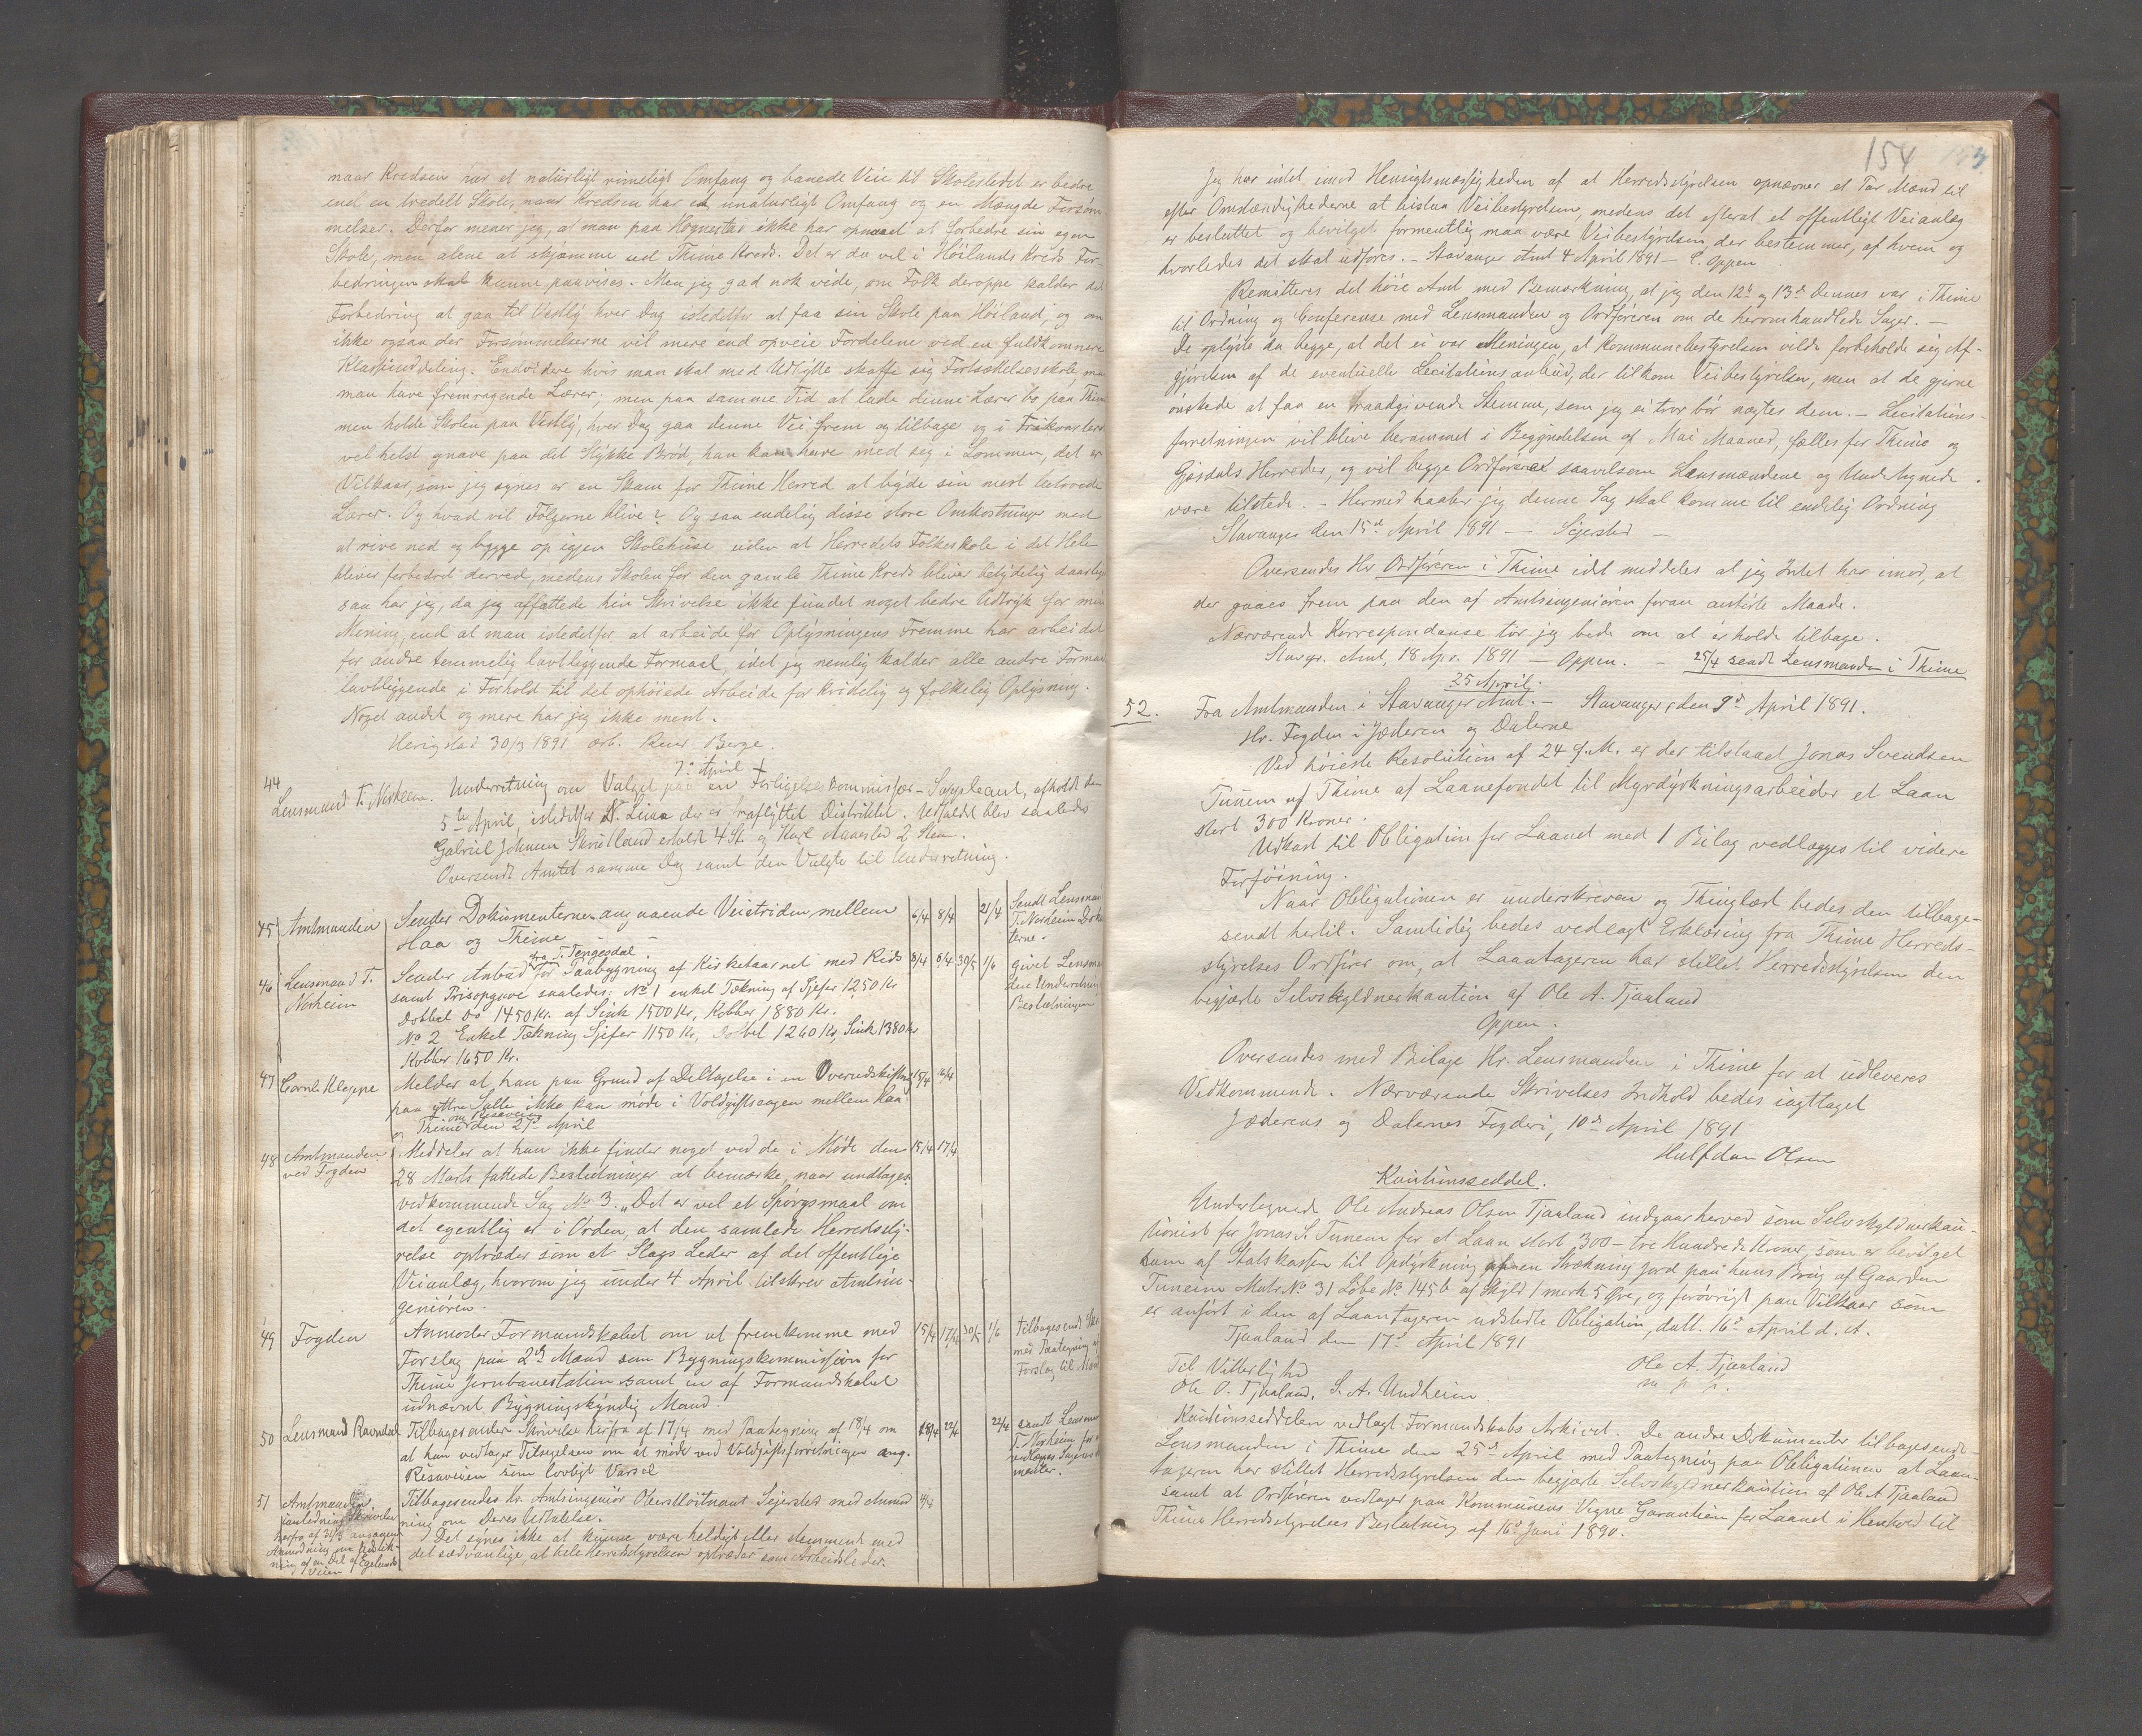 naar Kredsen har et naturligt rimeligt Omfang og banede Veie til Skolestedet er bedre
end en tredelt Skole, naar Kredsen har et unaturligt Omfang og en Mængde Forsøm-
melser. Derfor mener jeg, at man paa Hognestad ikke har opnaaet at forbedre sin egen
Skole, men alene at skjæmme ud Thime Kreds. Det er da vel i Høilands Kreds For-
bedringen skal kunne paavises. Men jeg gad nok vide, om Folk deroppe kalder det
Forbedring at gaa til Vestly hver Dag istedetfor at faa sin Skole paa Høiland, og om
ikke ogsaa der Forsømmelserne vil mere end opveie Fordelene ved en fuldkomnere
Klasseinddeling. Endvidere hvis man skal med Udbytte skaffe sig Fortsættelsesskole maa
man have fremragende Lærer, men paa samme Tid at lade denne Lærer bo paa Thime
men holde Skolen paa Vestly, hver Dag gaa denne Vei frem og tilbage og i Frikvarteret
vel helst gnave paa det Stykke Brød, han kan have med sig i Lommen, det er
Vilkaar, som jeg synes er en Skam for Thime Herred at byde sin mest betroede
Lærer. Og hvad vil Følgerne blive? Og saa endelig disse store Omkostninger med
at rive ned og bygge op igjen Skolehuse, uden at Herredets Folkeskole i det Hele
bliver forbedret derved, medens Skolen for den gamle Thime Kreds bliver betydelig daarlige
saa har jeg, da jeg affattede hin Skrivelse ikke fundet noget bedre Udtryk for min
Mening, end at man istedetfor at arbeide for Oplysningens Fremme har arbeidet
for andre temmelig lavtliggende Formaal, idet jeg nemlig kalder alle andre Formaal
lavtliggende i Forhold til det ophøiede Arbeide for kristelig og folkelig Oplysning.
Noget andet og mere har jeg ikke ment.
Herigstad 30/3 1891 ærb. Berge.
7de April
44 Lensmand T. Norheim. Underretning om Valget paa en Forligelseskommissær-Suppleant, afholdt den
5te April, istedetfor N. Lima der er fraflyttet Distriktet. Udfaldet blev saaledes
Gabriel Johnsen Skrudland erholdt 4 St. og Karl Aanestad 2 Stem.
Oversendt Amtet samme Dag samt den Valgte til Underretning.
45 Amtmanden Sender Dokumenterne angaaende Veistriden mellem 6/4 8/4 21/4 Sendt Lensman
Haa og Thime T. Norheim Doku
terne.
46 Lensmand T. Norheim Sender Anbud fra T. Tengesdal for Paabygning af Kirketaarnet med Rids 8/4 8/4 30/5 1/6 givet Lensma
samt Prisopgave saaledes: No 1 enkel Tækning af Sjefer 1250 Kr den Underretning
Dobbel Do 1450 Kr. af Sink 1500 Kr, Kobber 1880 Kr. Beslutningen
No 2 Enkel Tækning Sjefer 1150 Kr, Dobbel 1260 Kr, Sink 1380 Kr
Kobber 1650 Kr.
47 Corn. Kleppe Melder at han paa Grund af Deltagelse i en Overudskiftning 15/4 16/4
paa ytre Salte ikke kan møde i Voldgiftssagen mellem Haa
og Thime om Risaveien den 27de April
48 Amtmanden ved Fogden Meddeler at han ikke finder noget ved de i Møde den 15/4 17/4
28 Marts fattede Beslutninger at bemærke, naar undtages
vedkommende Sag No 3. „Det er vel et Spørgsmaal om
det egentlig er i Orden, at den samlede Herredssty-
relse optræder som et Slags Leder af det offentlige
Veianlæg, hvorom jeg under 4 April tilskrev Amtsin-
geniøren.
49 Fogden Anmoder Formandskabet om at fremkomme med 15/4 17/4 30/5 1/6 Tilbagesendt
Forslag paa 2de Mænd som Bygningskommission for med Paategning af
Thime Jernbanestation samt en af Formandskabet Forslag til Mænd
udnævnt Bygningskyndig Mand.
50 Lensmand Ravndal Tilbagesender Skrivelse herfra af 17/4 med Paategning af 18/4 om 18/4 22/4 22/4 sendt Lensman
at han vedtager Tilsigelsen om at møde ved Voldgiftsforretningen ang. T. Norheim for at
Risaveien som lovligt Varsel vedlægges Sagens Do
kumenter.
51 Amtmanden Tilbagesendes Hr. Amtsingeniør Oberstløitnant Sejersted med Anmod
i anledning Skrivelse ning om Deres Udtalelse.
herfra af 31/3 angaaende Det synes ikke at kunne være heldigt eller stemmende med
det sædvanlige, at hele Herredsstyrelsen optræder som Arbeidsleder.
154
Jeg har intet imod Hensigtsmæssigheden af at Herredsstyrelsen opnævner et Par Mænd til
efter Omstændighederne at bistaa Veibestyrelsen, medens det efterat et offentligt Veianlæg
er besluttet og bevilget formentlig maa være Veibestyrelsen der bestemmer, af hvem og
hvorledes det skal udføres. – Stavanger Amt 4 April 1891 – C. Oppen
Remitteres det høie Amt med Bemærkning, at jeg den 12te og 13de Dennes var i Thime
til Ordning og Conferense med Lensmanden og Ordføreren om de heromhandlede Sager. –
De oplyste da begge, at det ei var Meningen, at Kommunebestyrelsen vilde forbeholde sig Af-
gjørelsen af de eventuelle Lecitationsanbud, der tilkom Veibestyrelsen, men at de gjerne
ønskede at faa en raadgivende Stemme, som jeg ei tror bør nægtes dem. – Lecitations-
forretningen vil blive berammet i Begyndelsen af Mai Maaned, fælles for Thime og
Gjesdals Herreder, og vil begge Ordførere saavelsom Lensmændene og Undertegnede
være tilstede. – Hermed haaber jeg denne Sag skal komme til endelig Ordning.
Stavanger den 15de April 1891 – Sejersted –
Oversendes Hr Ordføreren i Thime idet meddeles at jeg Intet har imod, at
der gaaes frem paa den af Amtsingeniøren foran anførte Maade.
Nærværende Korrespondanse tør jeg bede om at erholde tilbage.
Stavgr. Amt, 18 Apr. 1891 – Oppen. – 25/4 sendt Lensmanden i Thime
25 April.
52. Fra Amtmanden i Stavanger Amt. – Stavanger, den 9de April 1891.
Hr. Fogden i Jæderen og Dalerne
Ved høieste Resolution af 24 f. M. er der tilstaaet Jonas Svendsen
Tunem af Thime af Laanefondet til Myrdyrkningsarbeider et Laan
stort 300 Kroner.
Udkast til Obligation for Laanet med 1 Bilag vedlægges til videre
Forføining.
Naar Obligationen er underskreven og Thinglæst bedes den tilbage-
sendt hertil. Samtidig bedes vedlagt Erklæring fra Thime Herreds-
styrelses Ordfører om, at Laantageren har stillet Herredsstyrelsen den
begjærte Selvskyldnerkaution af Ole A. Tjaaland
Oppen.
Oversendes med Bilage Hr. Lensmanden i Thime for at udleveres
Vedkommende. Nærværende Skrivelses Indhold bedes iagttaget
Jæderens og Dalernes Fogderi, 10de April 1891
Halfdan Olsen
Kautionsseddel.
Undertegnede Ole Andreas Olsen Tjaaland indgaar herved som Selvskyldnerkau-
tionist for Jonas S. Tunem for et Laan stort 300 – tre Hundrede Kroner, som er bevilget
ham af Statskassen til Opdyrkning af en Strækning Jord paa hans Brug af Gaarden
Tuneim Matr. No 31 Løbe No 145b af Skyld 1 mark 5 Øre, og forøvrigt paa Vilkaar som
er anført i den af Laantageren udstedte Obligation, datt. 16de April d. A.
Tjaaland den 17de April 1891
Til Vitterlighed Ole A. Tjaaland
Ole O. Tjaaland. S. A. Undheim m. p. p.
Kautionsseddelen vedlagt Formandskabs Arkivet. De andre Dokumenter tilbagesendt
Lensmanden i Thime den 25de April med Paategning paa Obligationen at Laan-
tageren har stillet Herredsstyrelsen den begjærte Selvskyldnerkaution af Ole A Tjaaland
samt at Ordføreren vedtager paa Kommunens Vegne Garantien for Laanet i Henhold til
Thime Herredsstyrelses Beslutning af 16de Juni 1890.